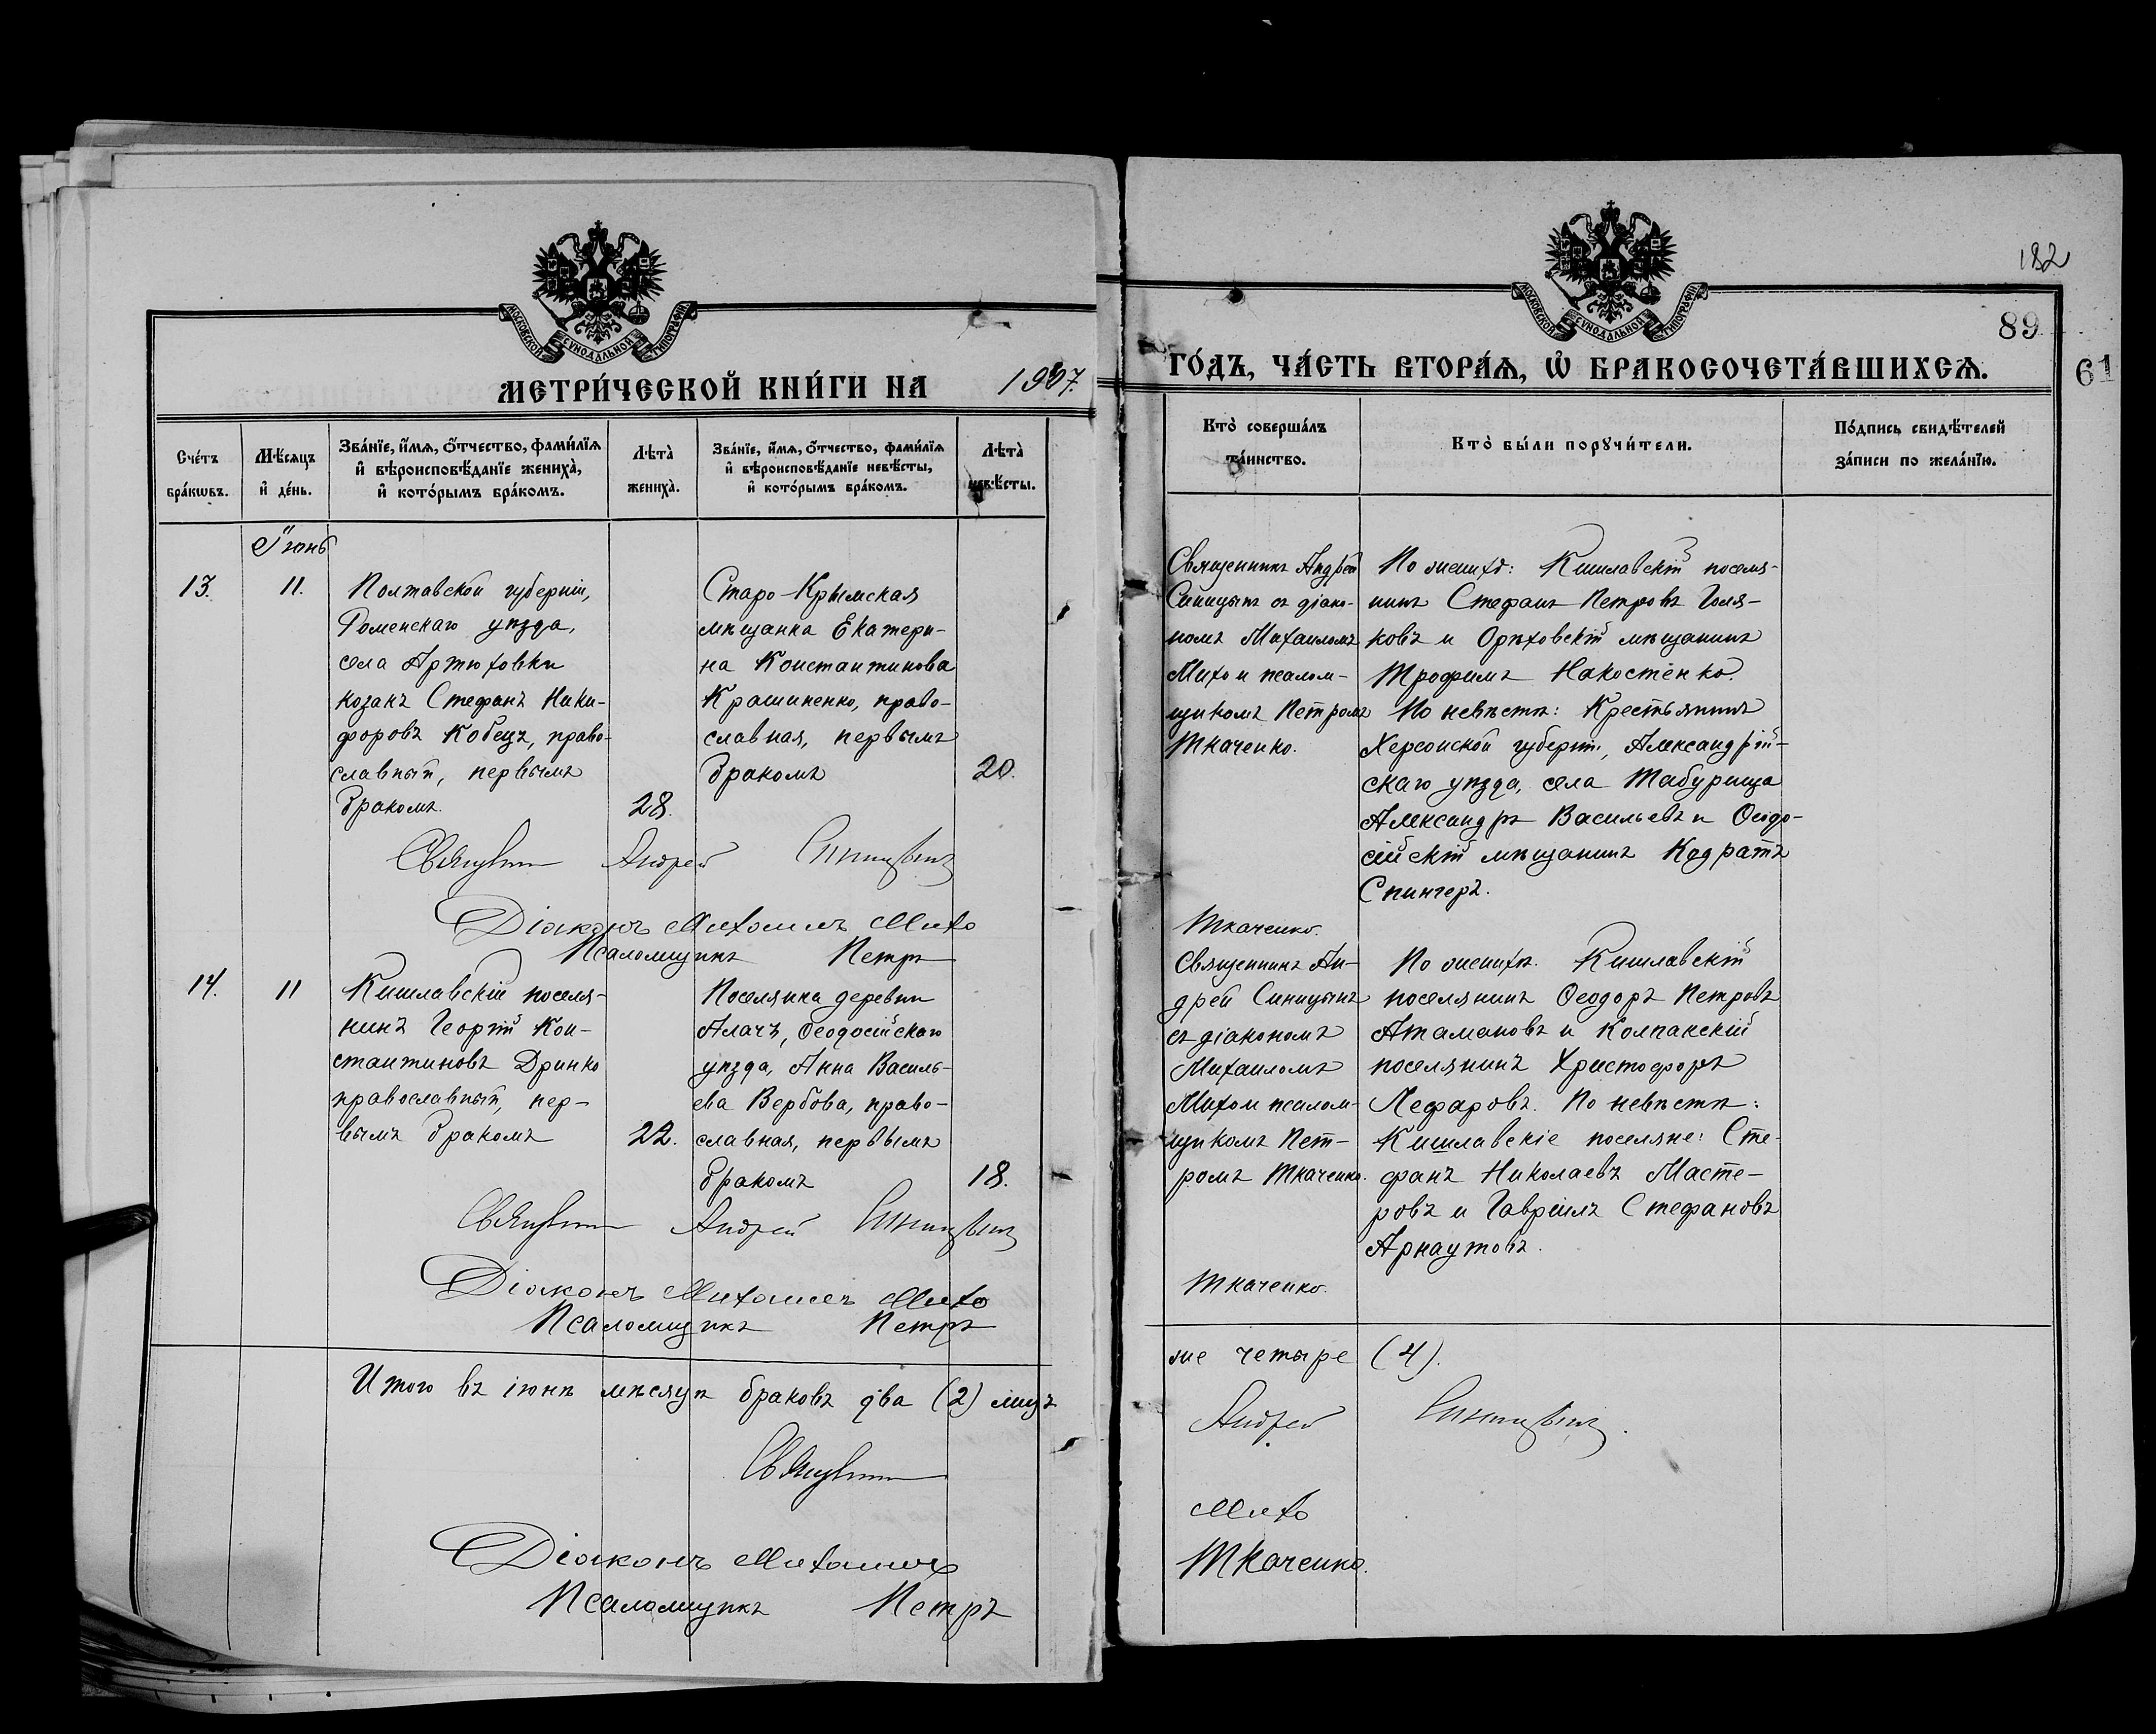 182
89
61
МОСКОВСКОЙ СѴНОДАЛЬНОЙ ТИПОГРАФІИ
МОСКОВСКОЙ СѴНОДАЛЬНОЙ ТИПОГРАФІИ
МЕТРИ́ЧЕСКОЙ КНИ́ГИ НА 1907.
ГО́ДЪ, ЧА́СТЬ ВТОРА́Я, Ѡ҆ БРАКОСОЧЕТА́ВШИХСЯ.
Сче́тъ бра́кѡвъ.
Мѣ́сяцъ и҆ де́нь.
Зва́нїе, и҆́мя, ѻ҆́тчество, фами́лїя
и҆ вѣроисповѣ́данїе жениха̀,
и҆ кото́рымъ бра́комъ.
Лѣта̀ жениха̀.
Зва́нїе, и҆́мя, ѻ҆́тчество, фами́лїя
и҆ вѣроисповѣ́данїе невѣ́сты,
и҆ кото́рымъ бра́комъ.
Лѣта̀ невѣ́сты.
Кто̀ соверша́лъ
та́инство.
Кто̀ бы́ли порꙋчи́тели.
По́дпись свидѣ́телей
за́писи по жела́нїю.
Іюнь
13.
11.
Полтавской губерніи,
Роменскаго уѣзда,
села Артюховки
козакъ Стефанъ Ники-
форовъ Кобецъ, право-
славный, первымъ
бракомъ.
28.
Старо-Крымская
мѣщанка Екатери-
на Константинова
Крашиненко, право-
славная, первымъ
бракомъ
20.
Священникъ Андрей
Синицынъ съ діако-
номъ Михаиломъ
Михо и псалом-
щикомъ Петромъ
Ткаченко.
По женихѣ: Кишлавскій поселя-
нинъ Стефанъ Петровъ Голя-
ковъ и Орѣховскій мѣщанинъ
Трофимъ Накостенко.
По невѣстѣ: Крестьянинъ
Херсонской губерніи, Александрій-
скаго уѣзда, села Табурища
Александръ Васильевъ и Ѳеодо-
сійскій мѣщанинъ Кодратъ
Спингеръ.
Священникъ Андрей Синицынъ
Діаконъ Михаилъ Михо
Псаломщикъ Петръ
Ткаченко.
14.
11
Кишлавскій поселя-
нинъ Георгій Кон-
стантиновъ Дринко
православный, пер-
вымъ бракомъ
22.
Поселянка деревни
Алачъ, Ѳеодосійскаго
уѣзда, Анна Василь-
ева Вербова, право-
славная, первымъ
бракомъ
18.
Священникъ Ан-
дрей Синицынъ
съ діакономъ
Михаиломъ
Михо и псалом-
щикомъ Пет-
ромъ Ткаченко.
По женихѣ. Кишлавскій
поселянинъ Ѳеодоръ Петровъ
Атамановъ и Колпакскій
поселянинъ Христофоръ
Лефаровъ. По невѣстѣ:
Кишлавскіе поселяне: Сте-
фанъ Николаевъ Масте-
ровъ и Гавріилъ Стефановъ
Арнаутовъ.
Священникъ Андрей Синицынъ
Діаконъ Михаилъ Михо
Псаломщикъ Петръ
Ткаченко.
Итого въ іюнѣ мѣсяцѣ браковъ два (2) лицъ
же четыре (4).
Священникъ
Андрей Синицынъ.
Діаконъ Михаилъ
Михо
Псаломщикъ Петръ
Ткаченко.